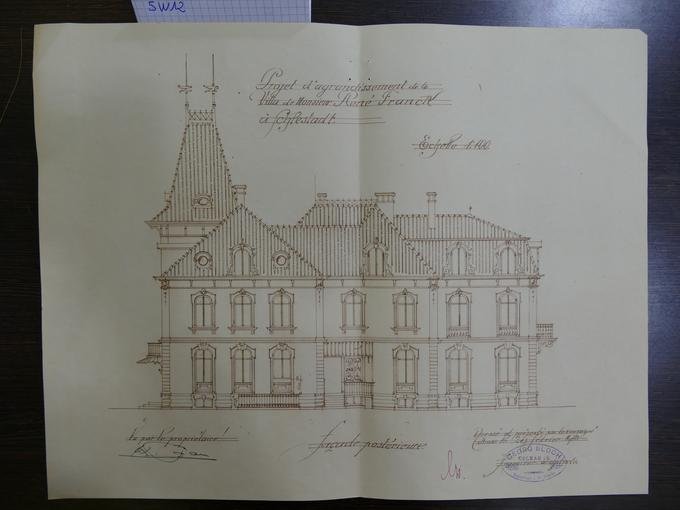 5W12
Projet d'agrandissement de la
Villa de Monsieur René Franck
à Schlestadt.
Echelle 1:100.
Vu par le propriétaire!
façade postérieure.
Dressé et présenté par
Colmar
GEORG BLOCH
COLMAR i/E.